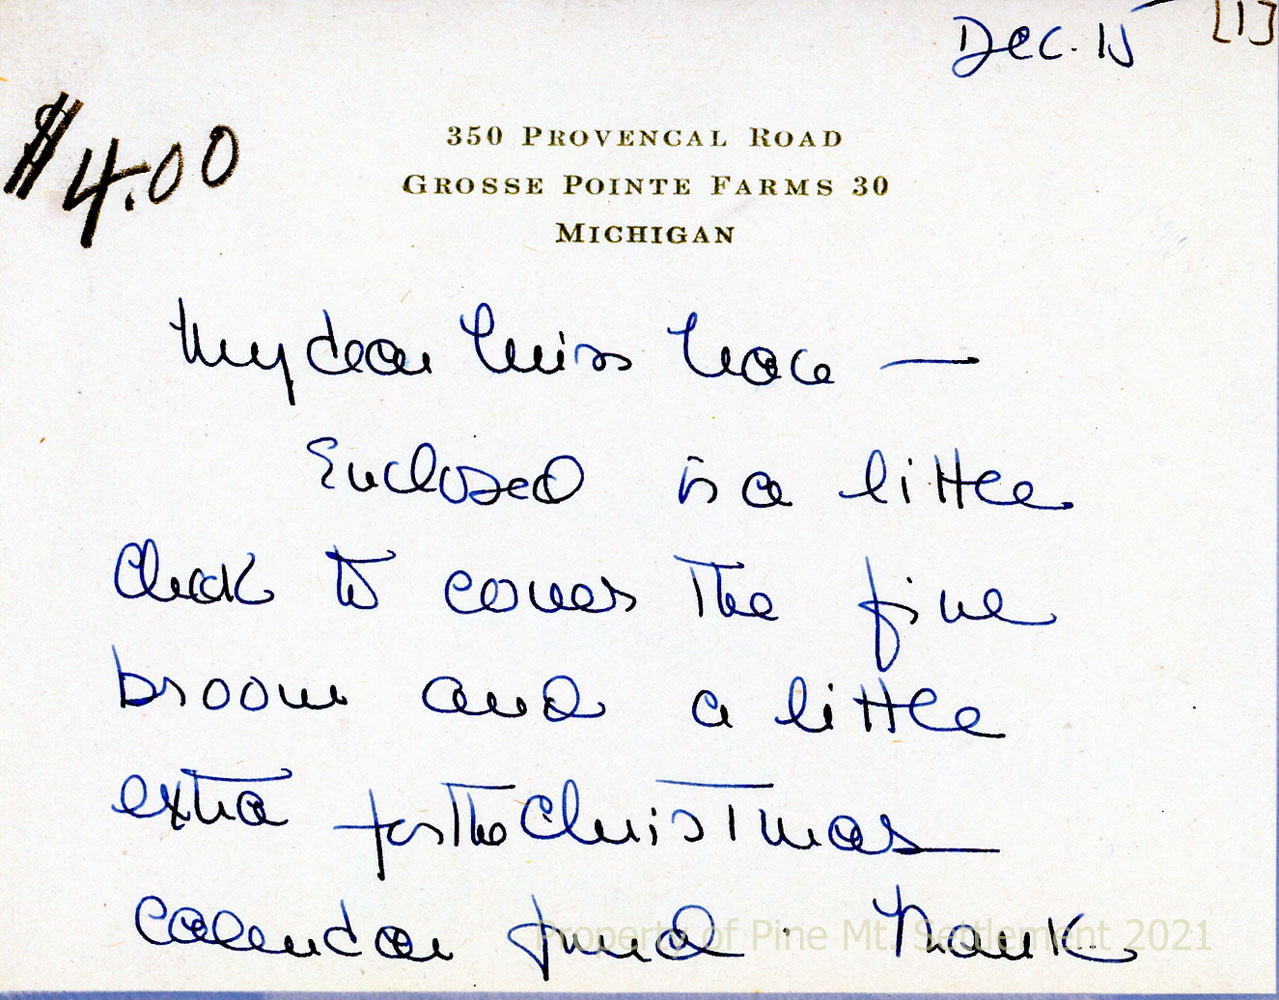 Dec. 15 [1]
$4.00
350 Provencal Road
Grosse Pointe Farms 30
Michigan
My dear Miss Nace —
Enclosed is a little
check to cover the fine
broom and a little
extra for the Christmas
calendar fund. Thank
Property of Pine Mt. Settlement 2021